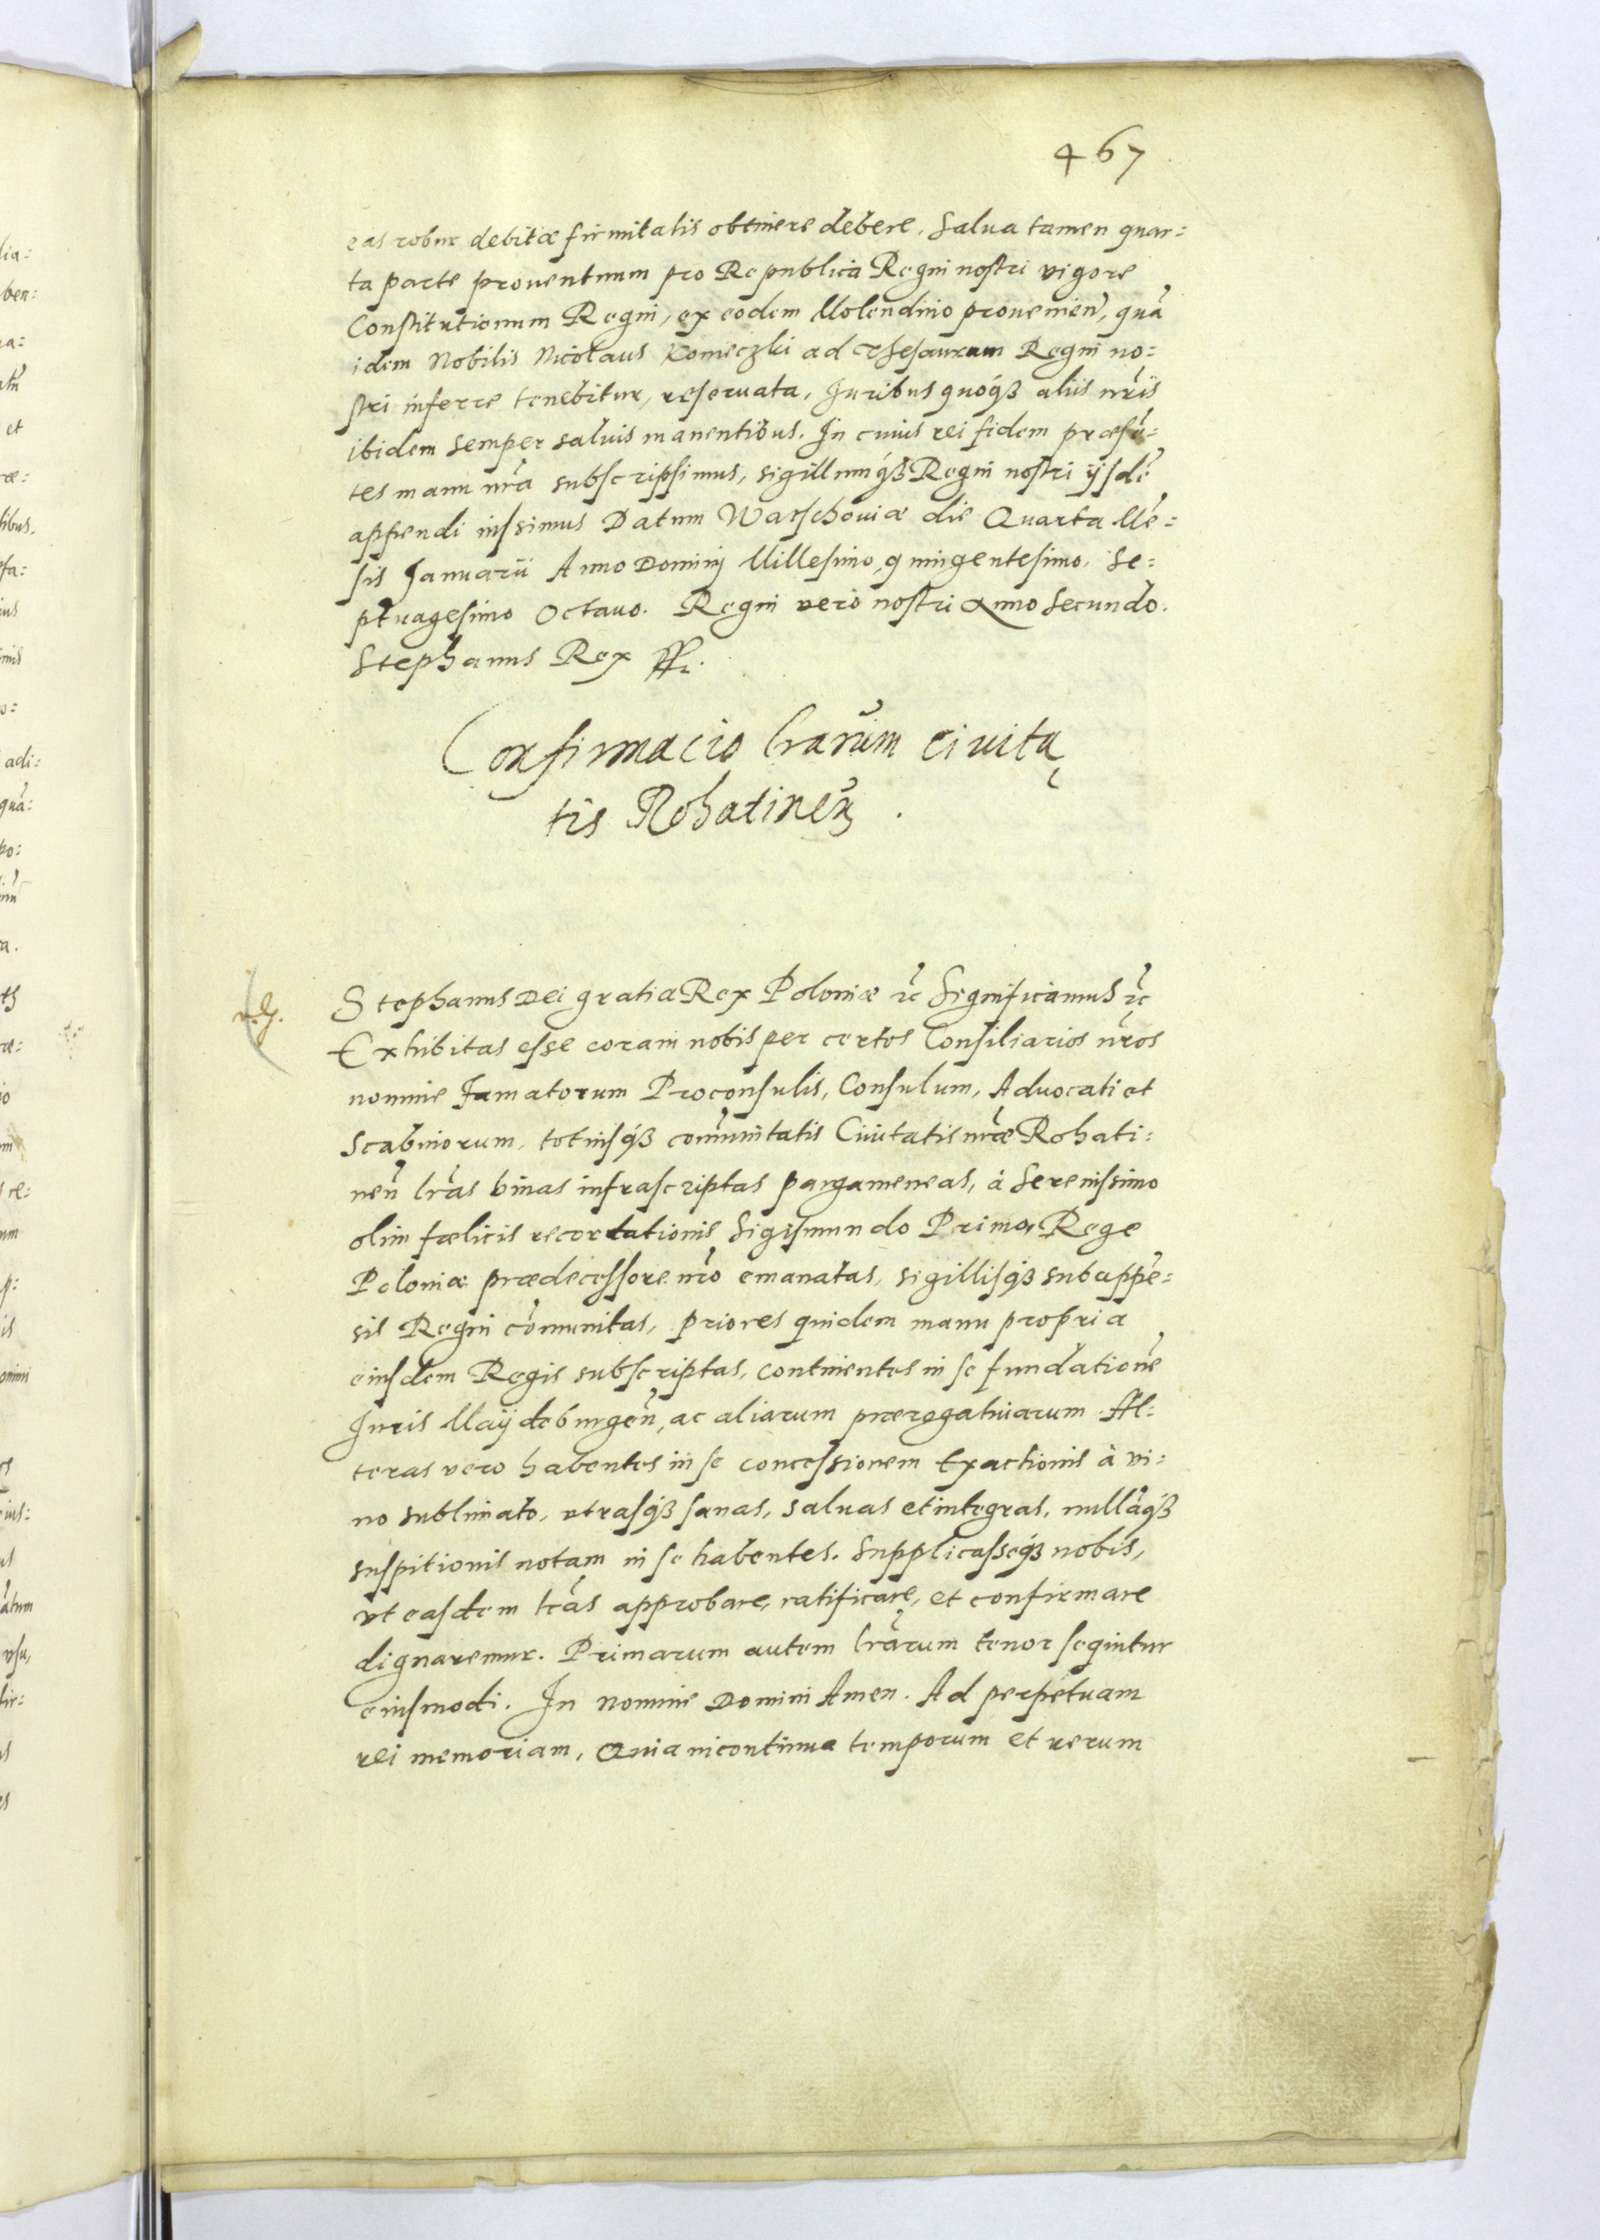 467
eas robur debitæ firmitatis obtinere debere. Salua tamen quar=
ta parte prouentuum pro Republica Regni nostri vigore
Constitutionum Regni, ex eodem Molendino prouenien̄, quā
idem Nobilis Nicolaus Komieczki ad Thesaurum Regni no=
stri inferre tenebitur, reseruata, Juribus quoqꝫ aliis nr̄is
ibidem semper saluis manentibus. In cuius rei fidem præsē=
tes manu nr̄a subscripsimus, sigillumqꝫ Regni nostri ijsdē
appendi iussimus Datum Warschouiæ die Quarta Mē=
sis Januarii Anno Dominj Millesimo, quingentesimo. Se=
ptuagesimo Octauo. Regni vero nostri Anno Secundo.
Stephanus Rex
Confirmacio lr̄arum ciuita
tis Rohatinen̄
Stephanus Dei gratia Rex Poloniæ ꝛc̄ Significamus ꝛc̄
Exhibitas esse coram nobis per certos Consiliarios nr̄os
nomine Famatorum Proconsulis, Consulum, Aduocati et
Scabinorum, totiusqꝫ com̄unitatis Ciuitatis nr̄æ Rohati=
nen̄ lr̄as binas infrascriptas pargameneas, à Serenissimo
olim fœlicis recordationis Sigismundo Primo, Rege
Poloniæ prædecessore nr̄o emanatas, sigillisqꝫ subappē=
sis Regni cōmunitas, priores quidem manu propria
eiusdem Regis subscriptas, continentes in se fundationē
Juris Maijdeburgen̄, ac aliarum prærogatiuarum. Al=
teras vero habentes in se concessionem Exactionis à vi=
no sublimato, vtrasqꝫ sanas, saluas et integras, nullāqꝫ
suspitionis notam in se habentes. Supplicasseqꝫ nobis,
vt easdem lr̄as approbare, ratificare, et confirmare
dignaremur. Primarum autem lr̄arum tenor sequitur
eiusmodi. In nomine Domini Amen. Ad perpetuam
rei memoriam, Quia incontinua temporum et rerum